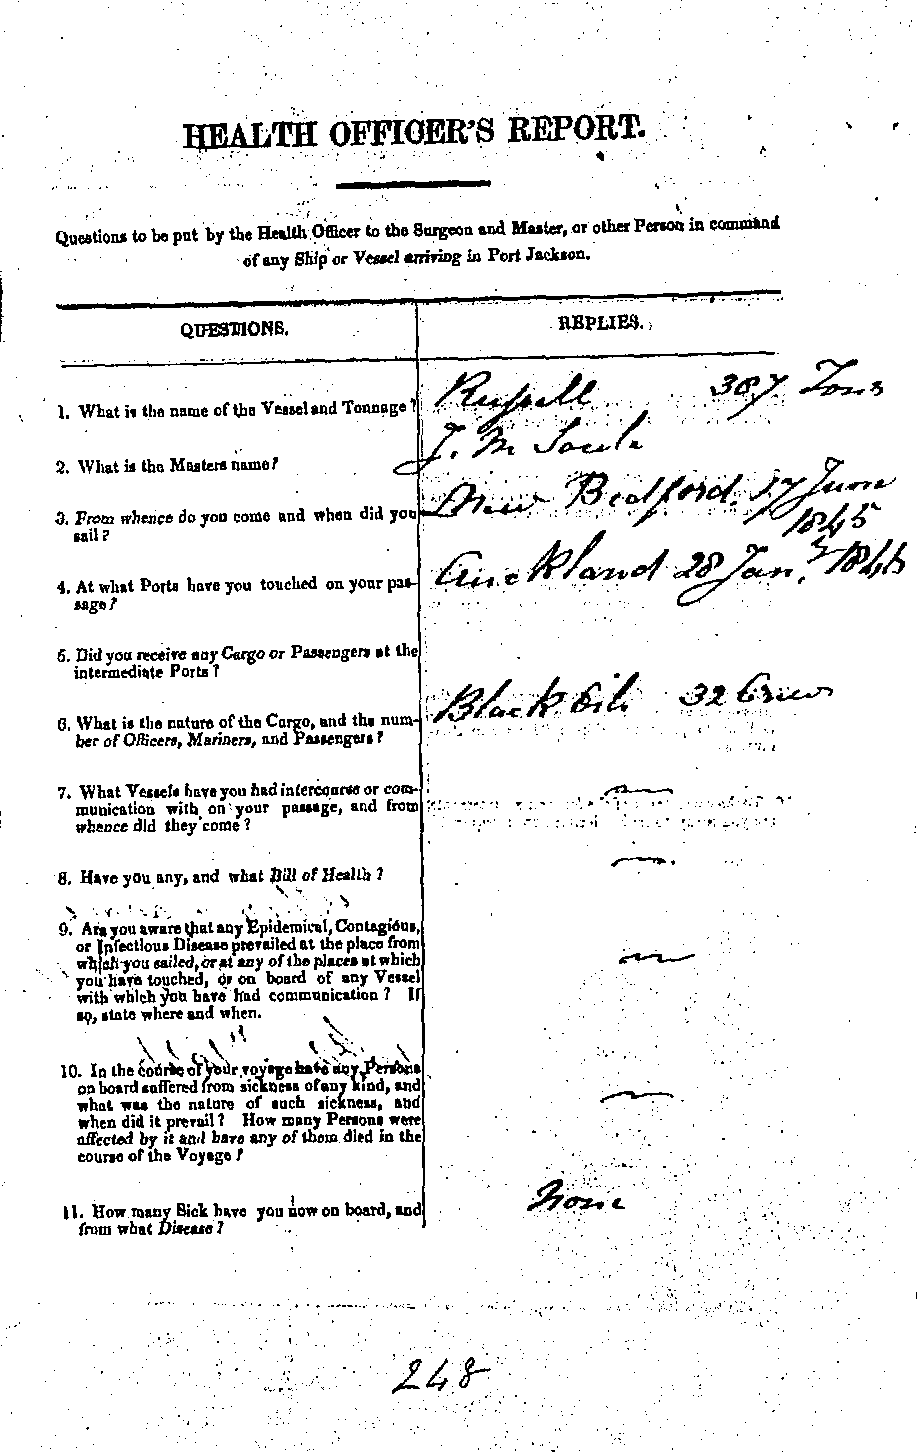 HEALTH OFFICER'S REPORT.
Questions to be put by the Health Officer to the Surgeon and Master, or other Person in command
of any Ship or Vessel arriving in Port Jackson.
QUESTIONS.
REPLIES.
1. What is the name of the Vessel and Tonnage?
Russell 387 Tons
2. What is the Masters name?
J. M Soule
3. From whence do you come and when did you
sail?
New Bedford 17 June
1845
4. At what Ports have you touched on your pas-
sage?
Auckland 28 Jan.y 1846
5. Did you receive any Cargo or Passengers at the
intermediate Ports?
6. What is the nature of the Cargo, and the num-
ber of Officers, Mariners, and Passengers?
Black Oil 32 Crew
7. What Vessels have you had intercourse or com-
munication with on your passage, and from
whence did they come?
8. Have you any, and what Bill of Health?
9. Are you aware that any Epidemical, Contagious,
or Infectious Disease prevailed at the place from
which you sailed, or at any of the places at which
you have touched, or on board of any Vessel
with which you have had communication? If
so, state where and when.
10. In the course of your voyage have any Persons
on board suffered from sickness of any kind, and
what was the nature of such sickness, and
when did it prevail? How many Persons were
affected by it and have any of them died in the
course of the Voyage?
11. How many Sick have you now on board, and
from what Disease?
None
248